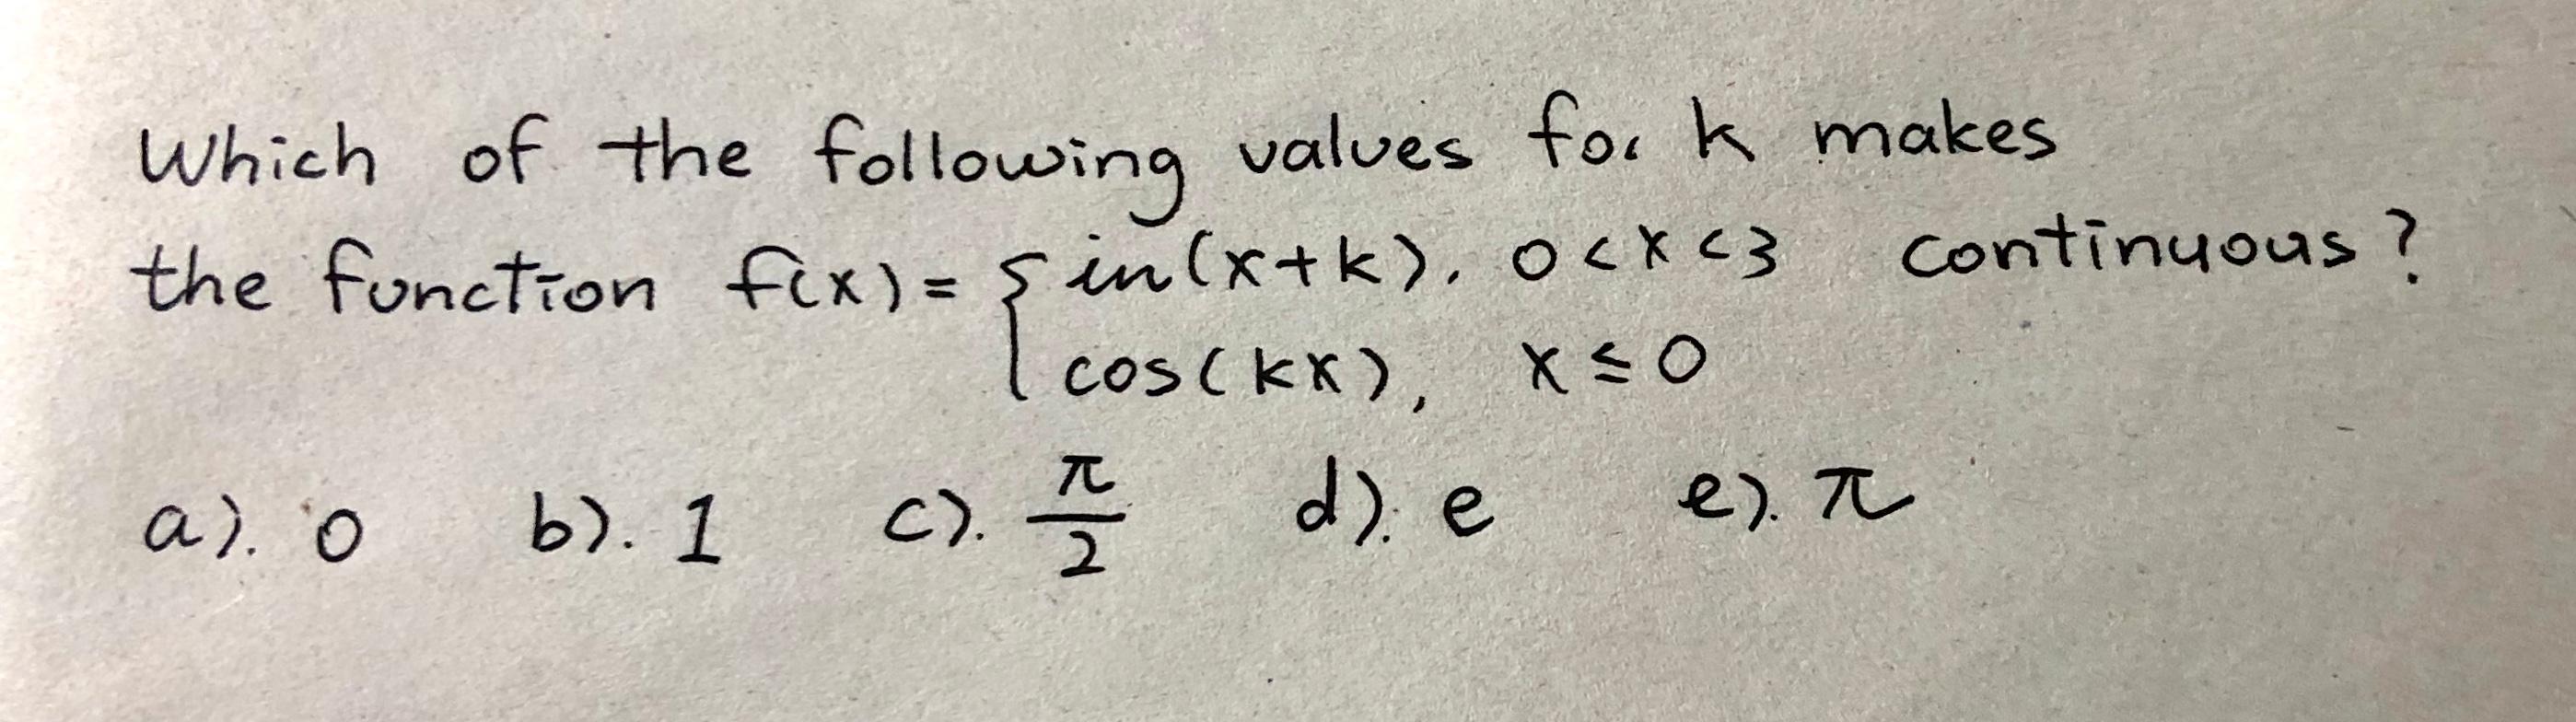 Which of the following values for k makes
the function f(x) = { in(x+k), 0<x<3 continuous?
cos(kx), x≤0
a). 0 b). 1 c). π/2 d). e e). π